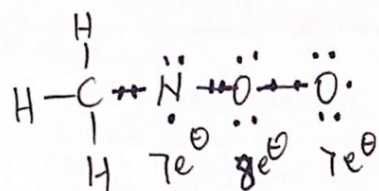 H
H–C–N–O–O
H
7e⊖ 8e⊖ 7e⊖